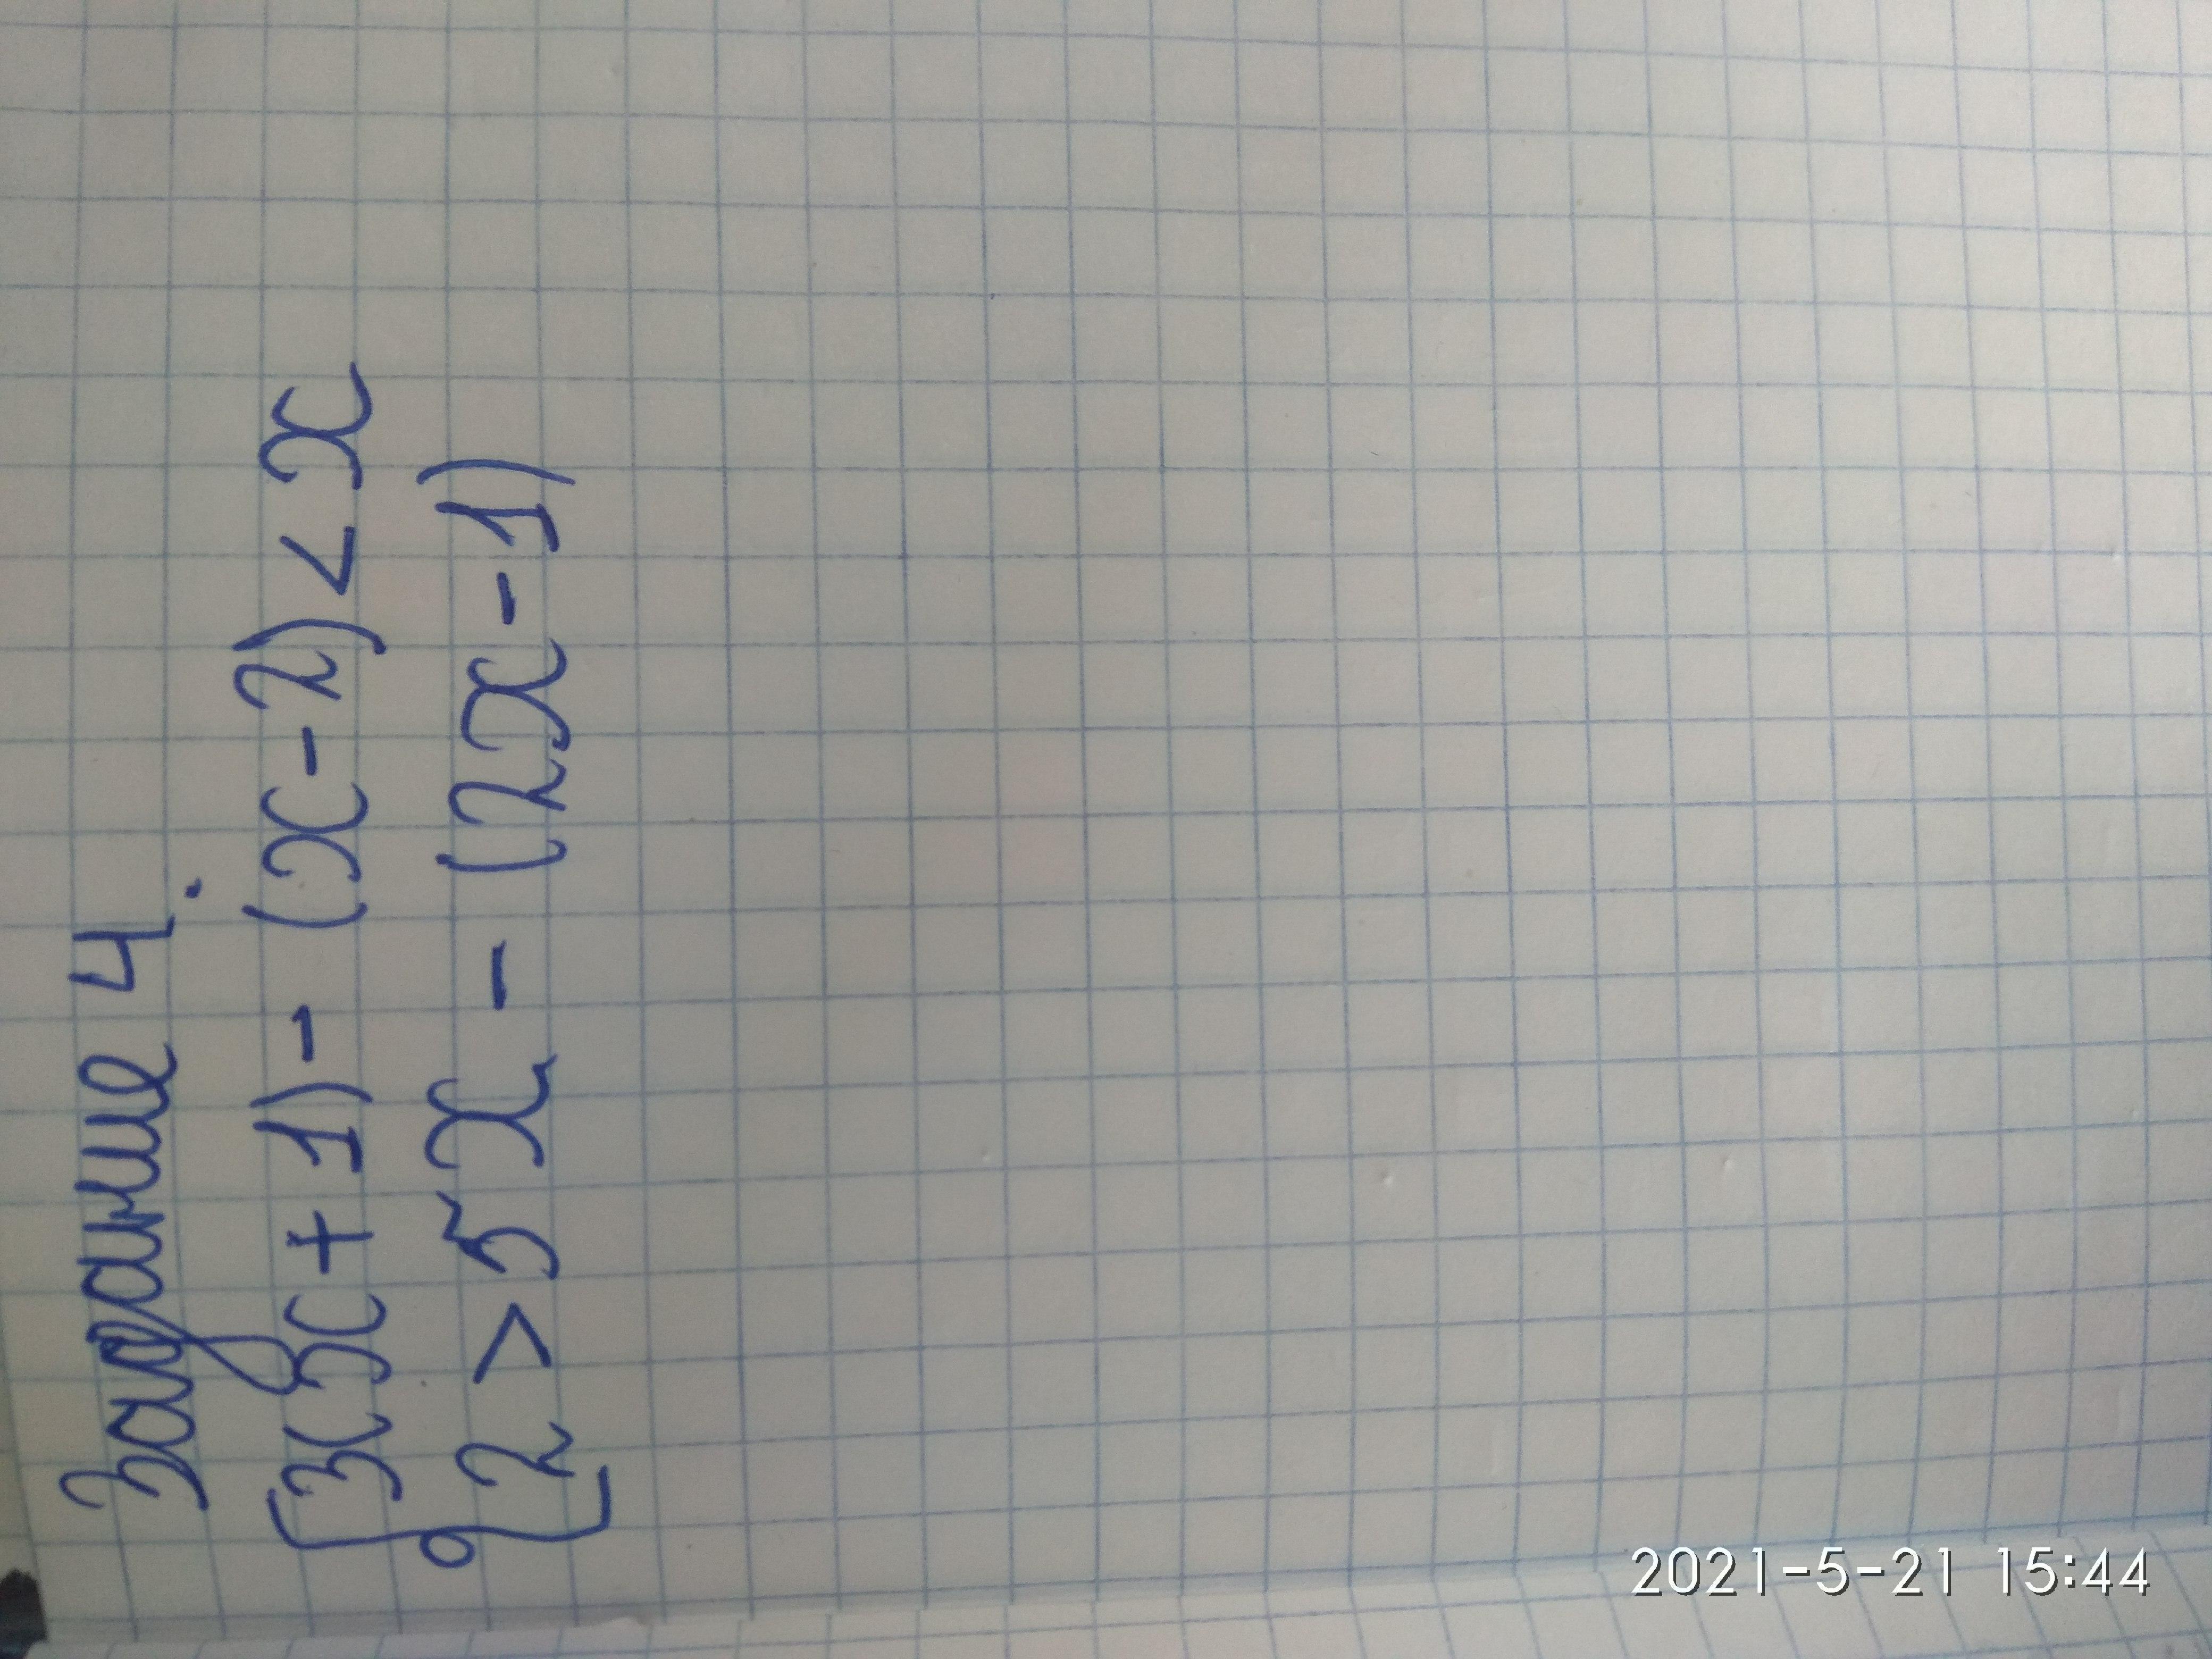 Задание 4.
3(x+1)-(x-2)<x
2>5x-(2x-1)
2021-5-21 15:44